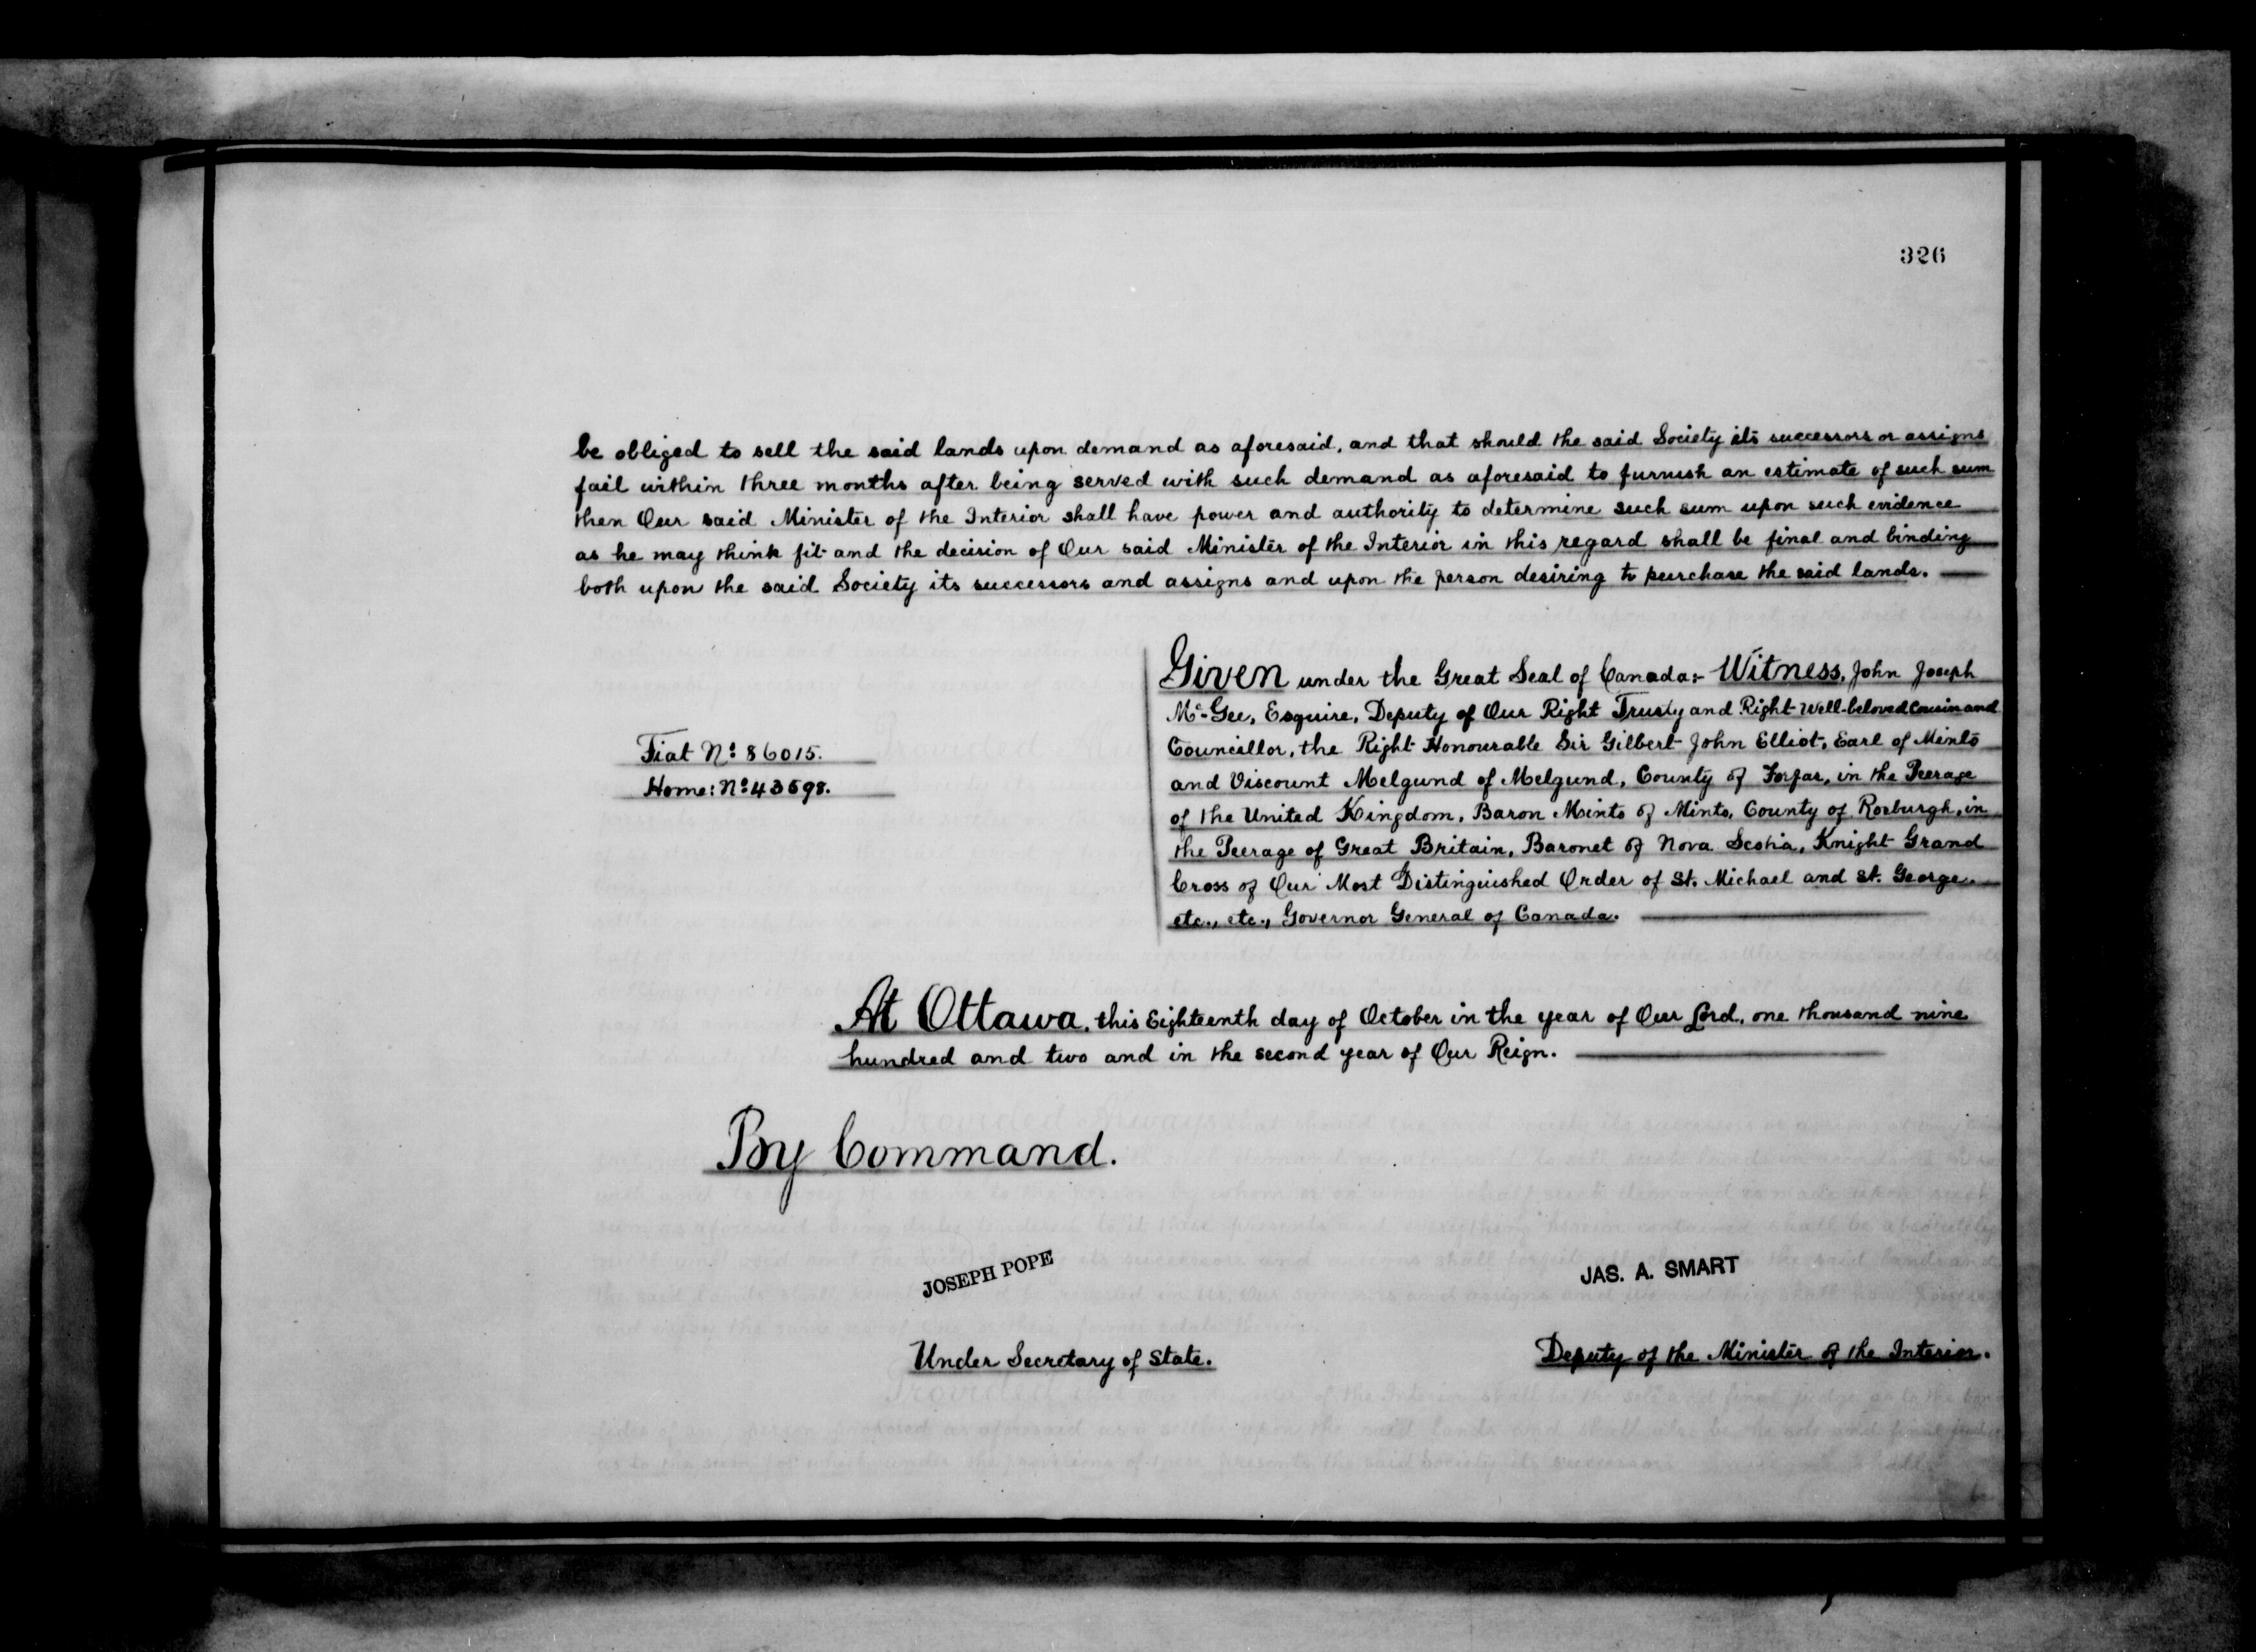 326
be obliged to sell the said lands upon demand as aforesaid, and that should the said Society its successors or assigns
fail within three months after being served with such demand as aforesaid to furnish an estimate of such sum
then Our said Minister of the Interior shall have power and authority to determine such sum upon such evidence
as he may think fit and the decision of Our said Minister of the Interior in this regard shall be final and binding
both upon the said Society its successors and assigns and upon the person desiring to purchase the said lands.
Given under the Great Seal of Canada:- Witness, John Joseph
Mc Gee, Esquire, Deputy of Our Right Trusty and Right Well-beloved Cousin and
Councillor, the Right Honourable Sir Gilbert John Elliot, Earl of Minto
and Viscount Melgund of Melgund, County of Forfar, in the Peerage
of the United Kingdom, Baron Minto of Minto, County of Roxburgh, in
the Peerage of Great Britain, Baronet of Nova Scotia, Knight Grand
Cross of Our Most Distinguished Order of St. Michael and St. George.
etc., etc., Governor General of Canada.
Fiat No: 86015.
Home: No: 43598.
At Ottawa, this Eighteenth day of October in the year of Our Lord, one thousand nine
hundred and two and in the second year of Our Reign.
By Command.
JOSEPH POPE
JAS. A. SMART
Under Secretary of State.
Deputy of the Minister of the Interior.